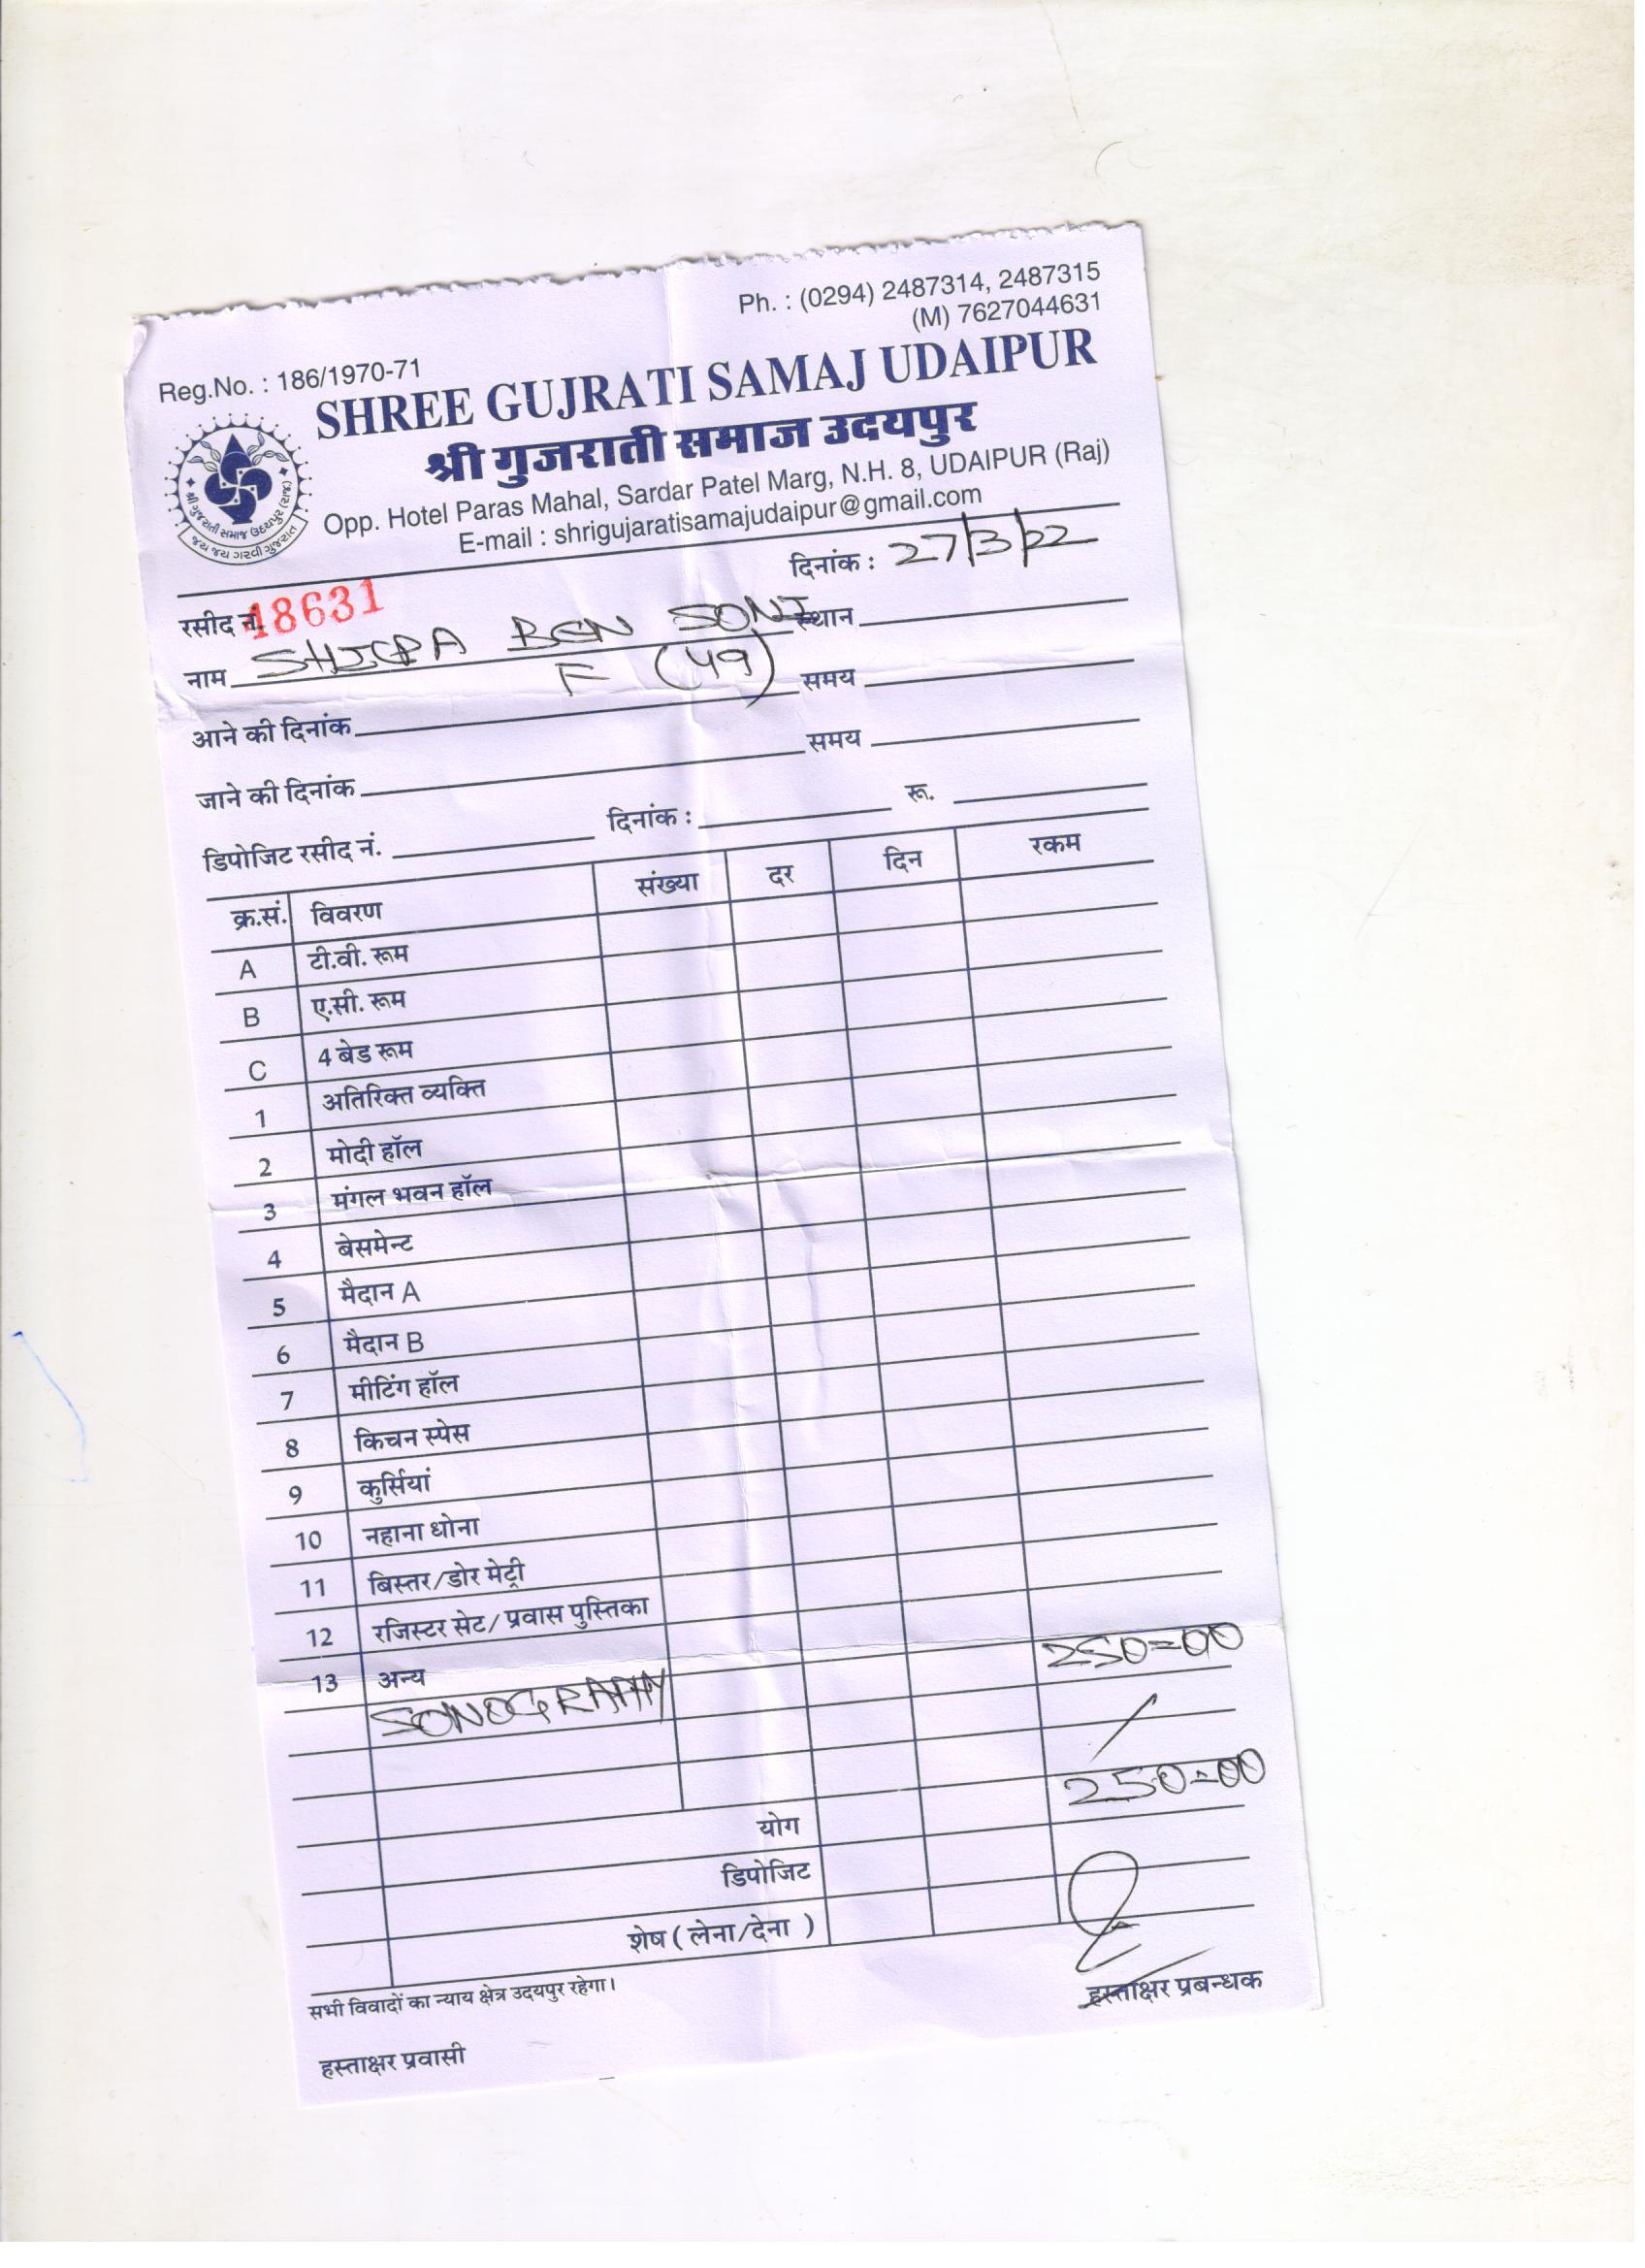 Ph. : (0294) 2487314, 2487315
(M) 7627044631
Reg.No. : 186/1970-71
SHREE GUJRATI SAMAJ UDAIPUR
श्री गुजराती समाज उदयपुर
Opp. Hotel Paras Mahal, Sardar Patel Marg, N.H. 8, UDAIPUR (Raj)
E-mail : shrigujaratisamajudaipur@gmail.com
શ્રી ગુજરાતી સમાજ ઉદયપુર (રાજ)
જય જય ગરવી ગુજરાત
दिनांक : 27/3/22
रसीद नं. 48631
नाम SHIPRA BEN SONI स्थान
F (49)
आने की दिनांक समय
जाने की दिनांक समय
डिपोजिट रसीद नं. दिनांक : रू.
क्र.सं. विवरण संख्या दर दिन रकम
A टी.वी. रूम
B ए.सी. रूम
C 4 बेड रूम
1 अतिरिक्त व्यक्ति
2 मोदी हॉल
3 मंगल भवन हॉल
4 बेसमेन्ट
5 मैदान A
6 मैदान B
7 मीटिंग हॉल
8 किचन स्पेस
9 कुर्सियां
10 नहाना धोना
11 बिस्तर/डोर मेट्री
12 रजिस्टर सेट/ प्रवास पुस्तिका
13 अन्य 250=00
SONOGRAPHY
250=00
योग
डिपोजिट
शेष ( लेना/देना )
सभी विवादों का न्याय क्षेत्र उदयपुर रहेगा।
हस्ताक्षर प्रबन्धक
हस्ताक्षर प्रवासी